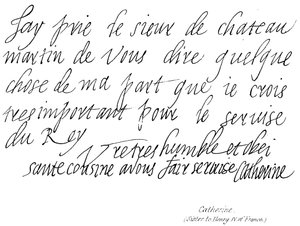 Jay prie le sieur de chateau
martin de vous dire quelque
chose de ma part que ie crois
tresimportant pour le seruise
du Rey
Vretres humble et obei
sante cousine a vous fair seruise Catherine
Catherine.
(Sister to Henry IV of France.)